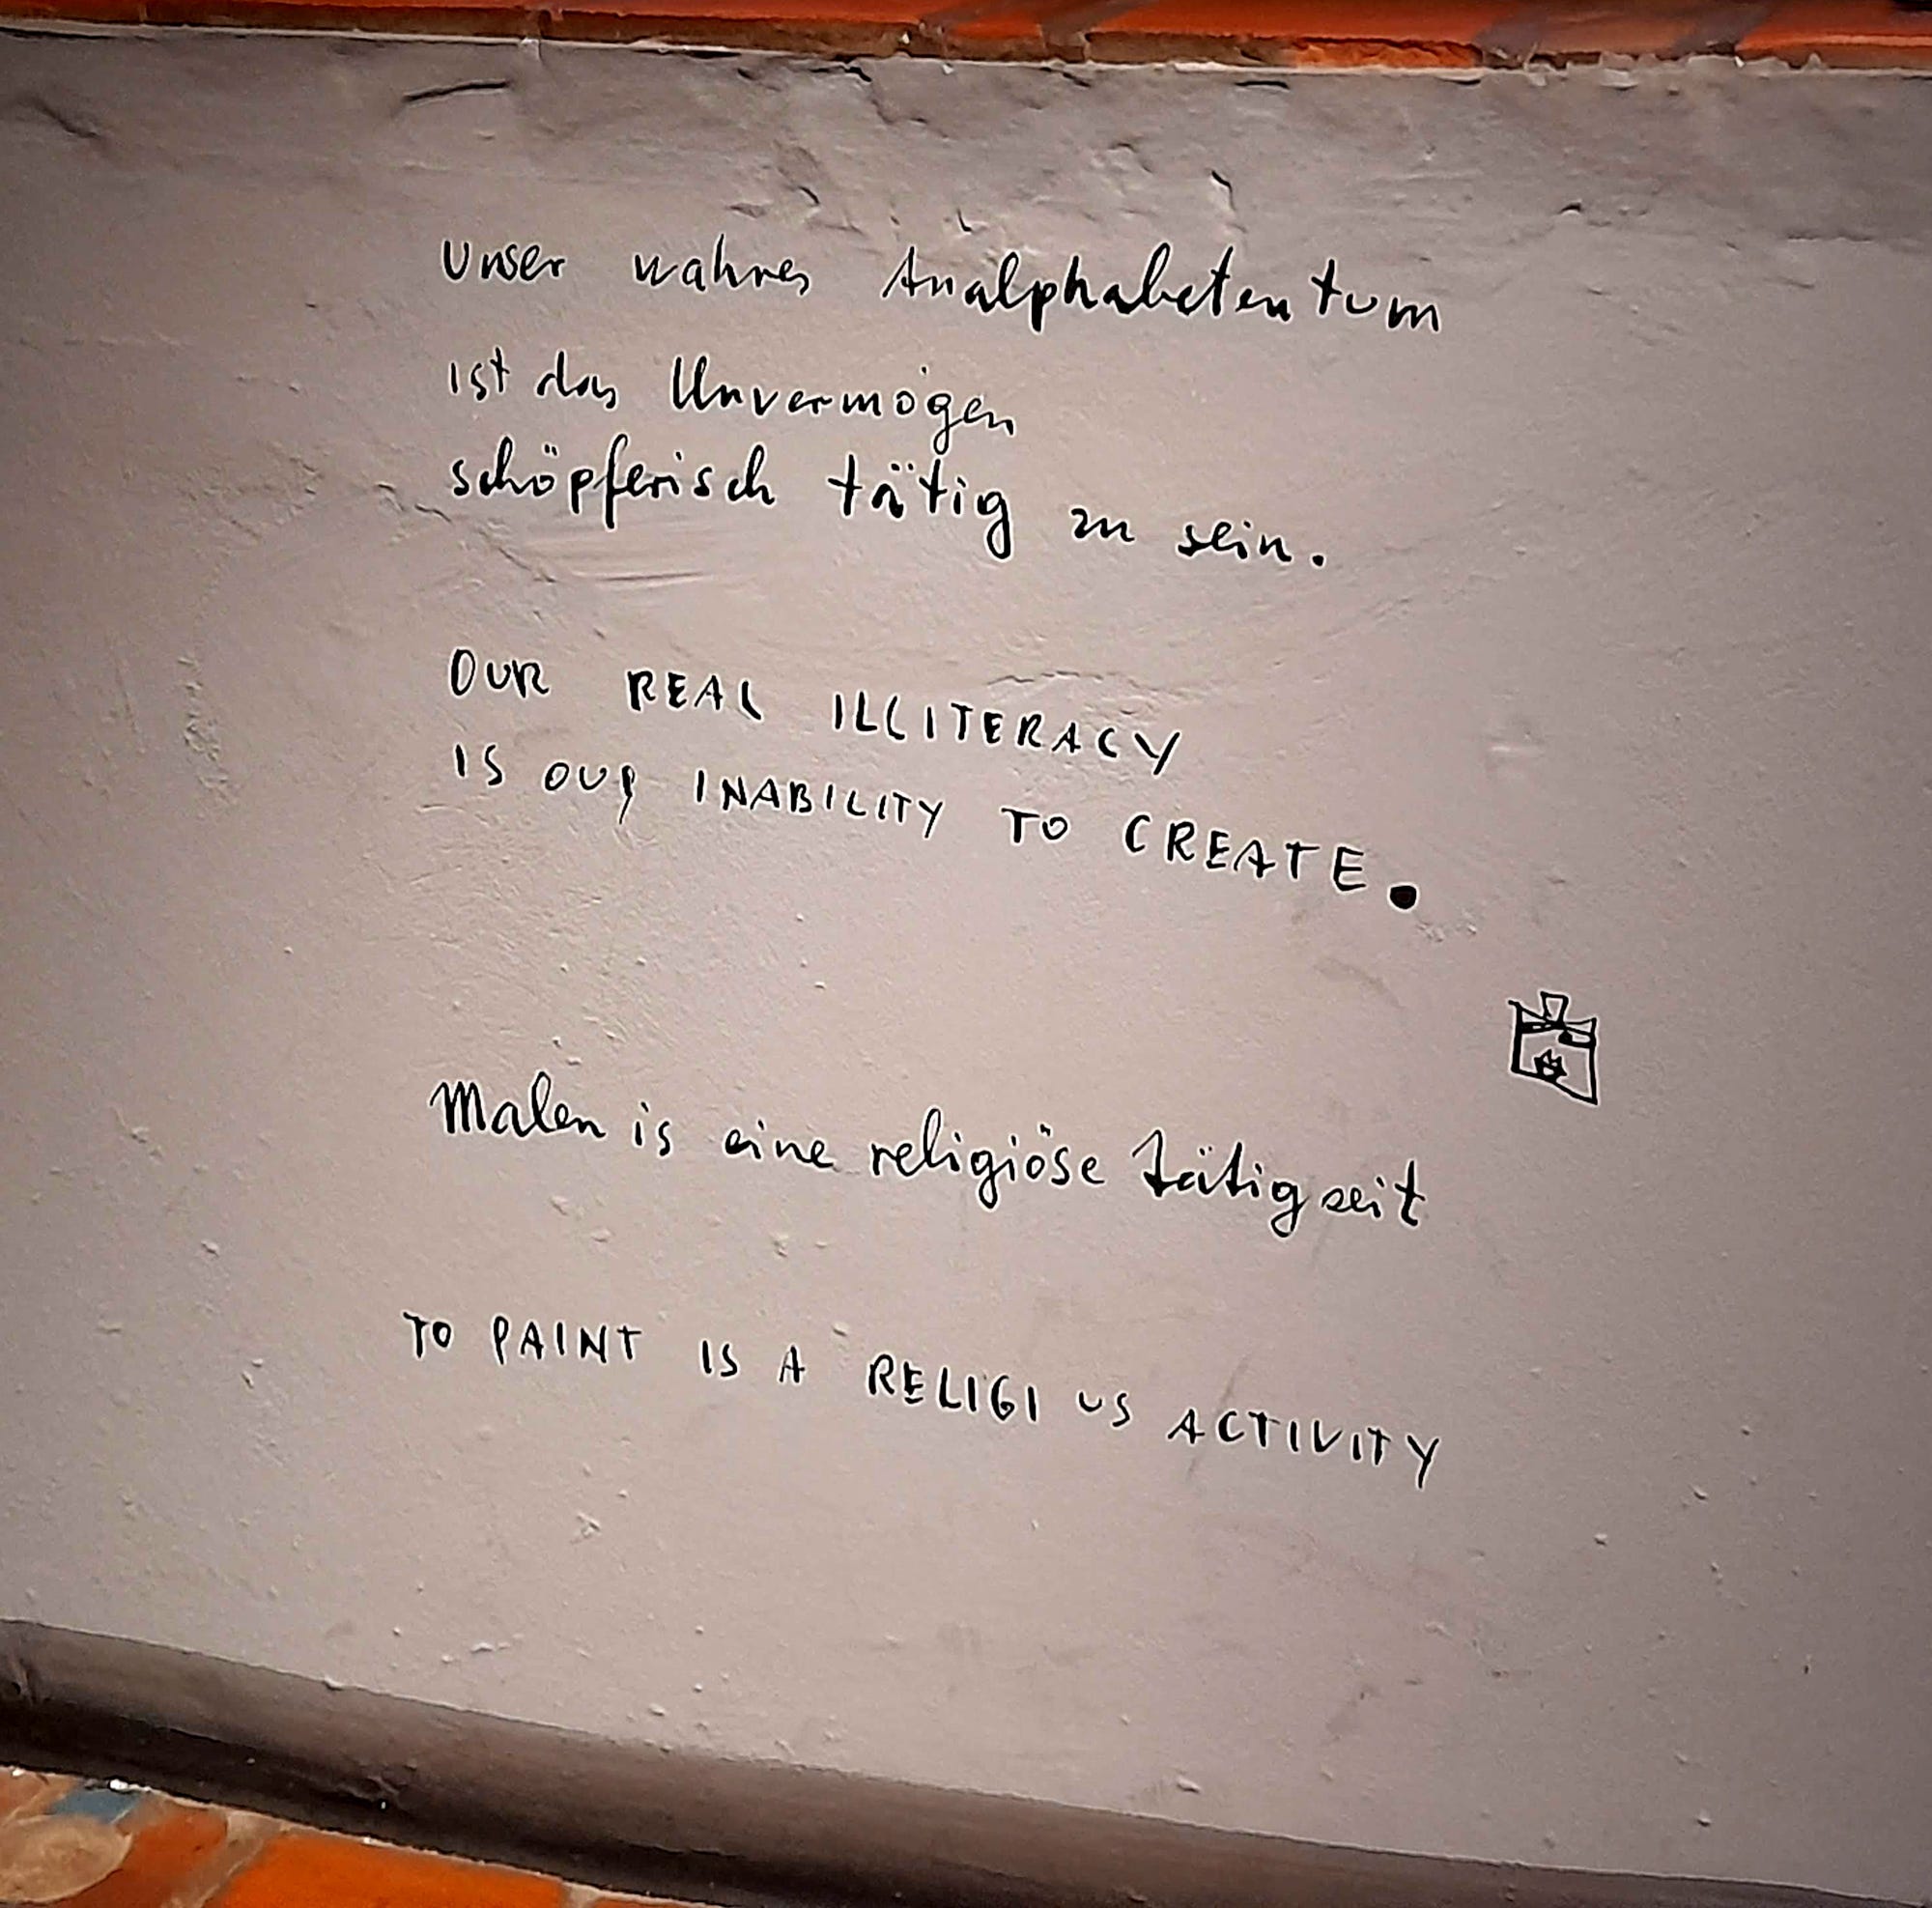 Unser wahres Analphabetentum
ist das Unvermögen
schöpferisch tätig zu sein.
OUR REAL ILLITERACY
IS OUR INABILITY TO CREATE.
Malen is eine religiöse Tätigkeit
TO PAINT IS A RELIGI US ACTIVITY